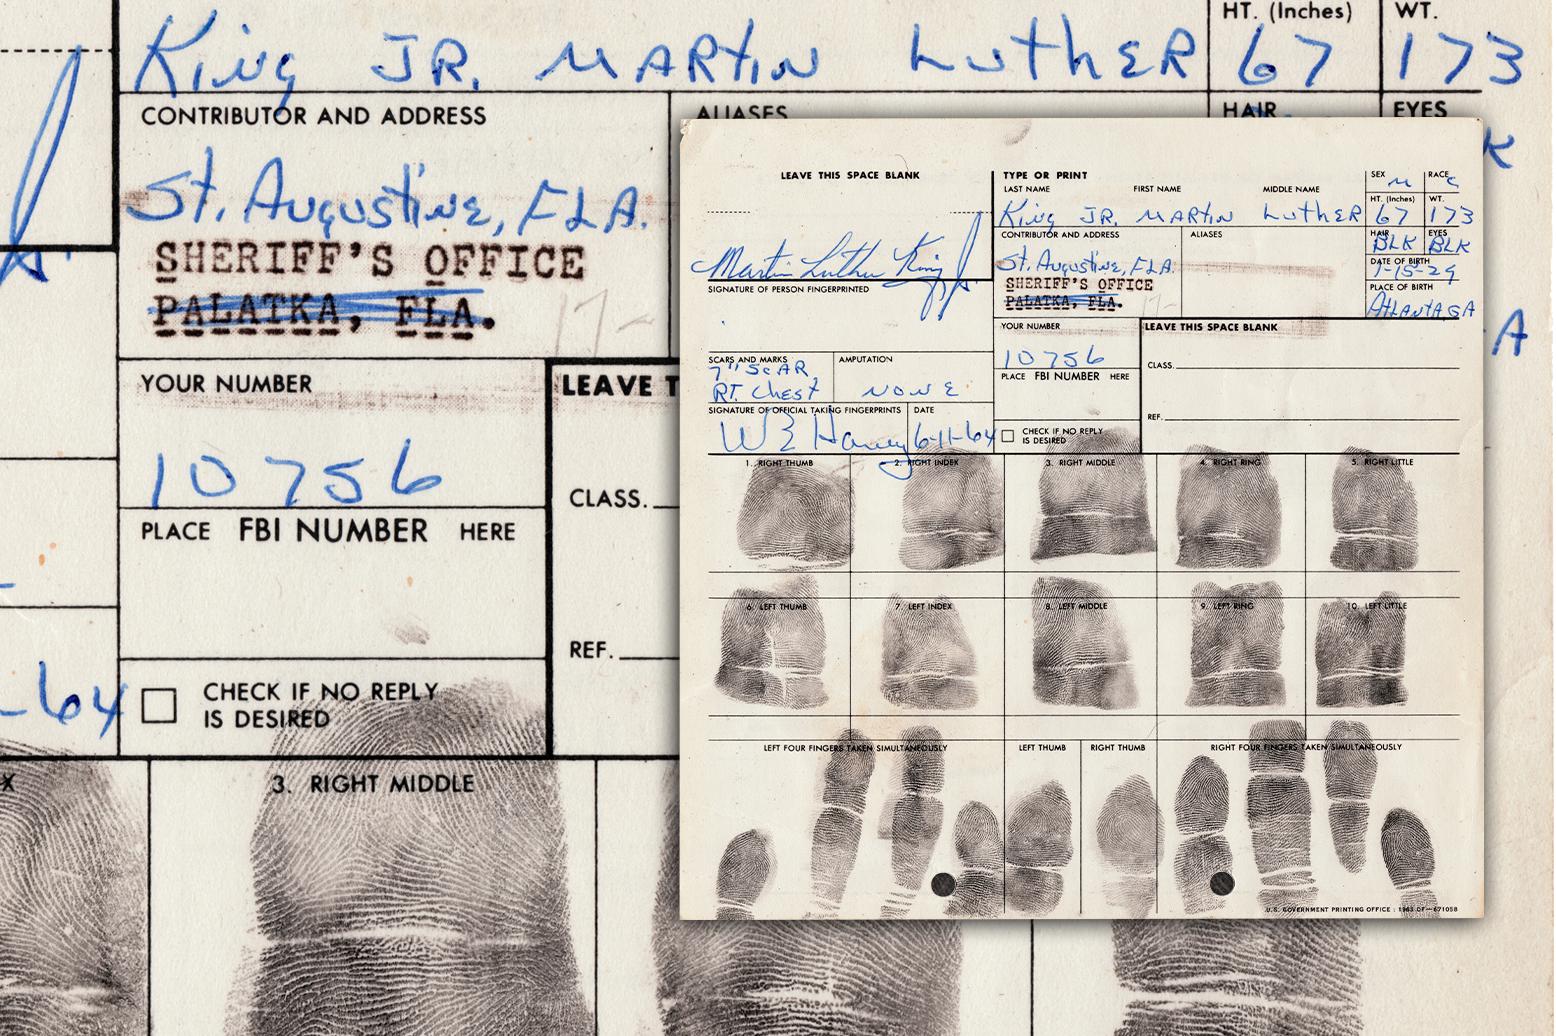 HT. (Inches) WT.
King JR. MARTIN LuthER 67 173
CONTRIBUTOR AND ADDRESS ALIASES HAIR EYES
St. Augustine, FLA.
SHERIFF'S OFFICE
PALATKA, FLA.
17-
YOUR NUMBER LEAVE T
10756
CLASS.
PLACE FBI NUMBER HERE
REF.
-64
CHECK IF NO REPLY
IS DESIRED
X 3. RIGHT MIDDLE
K
A
LEAVE THIS SPACE BLANK TYPE OR PRINT SEX M RACE C
LAST NAME FIRST NAME MIDDLE NAME
HT. (Inches) WT.
King JR. MARTIN LuthER 67 173
CONTRIBUTOR AND ADDRESS ALIASES HAIR EYES
BLK BLK
Martin Luther King Jr.
St. Augustine, FLA.
DATE OF BIRTH
1-15-29
SHERIFF'S OFFICE
SIGNATURE OF PERSON FINGERPRINTED PLACE OF BIRTH
PALATKA, FLA. 17-
ATLANTA, GA
YOUR NUMBER LEAVE THIS SPACE BLANK
10756
SCARS AND MARKS AMPUTATION
7" ScAR CLASS.
PLACE FBI NUMBER HERE
RT. Chest NONE
SIGNATURE OF OFFICIAL TAKING FINGERPRINTS DATE REF.
W E Harvey 6-11-64 CHECK IF NO REPLY
IS DESIRED
1. RIGHT THUMB 2. RIGHT INDEX 3. RIGHT MIDDLE 4. RIGHT RING 5. RIGHT LITTLE
6. LEFT THUMB 7. LEFT INDEX 8. LEFT MIDDLE 9. LEFT RING 10. LEFT LITTLE
LEFT FOUR FINGERS TAKEN SIMULTANEOUSLY LEFT THUMB RIGHT THUMB RIGHT FOUR FINGERS TAKEN SIMULTANEOUSLY
U.S. GOVERNMENT PRINTING OFFICE : 1963 OF—671058